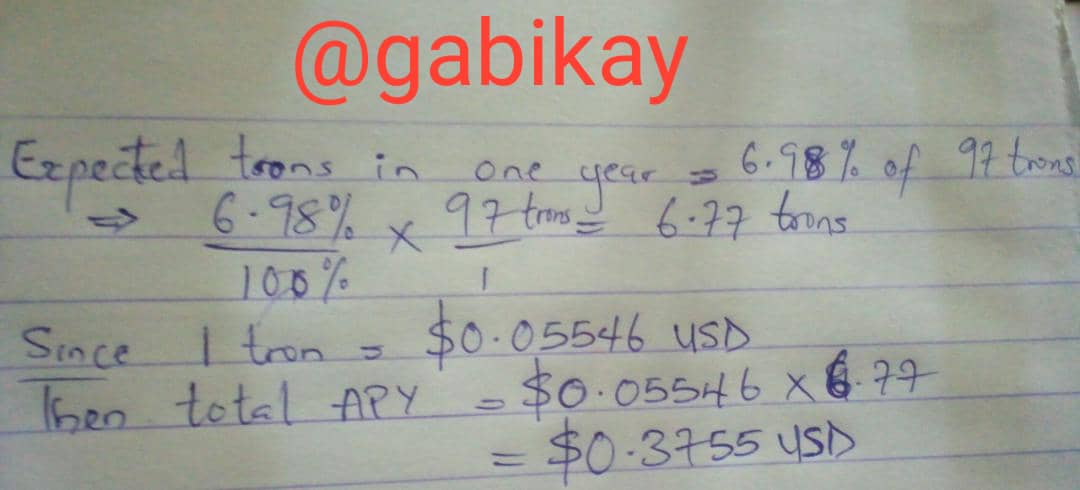 @gabikay
Expected trons in one year = 6.98% of 97 trons
⇒ 6.98% × 97 trons = 6.77 trons
100% 1
Since 1 tron = $0.05546 USD
Then total APY = $0.05546 × 6.77
= $0.3755 USD